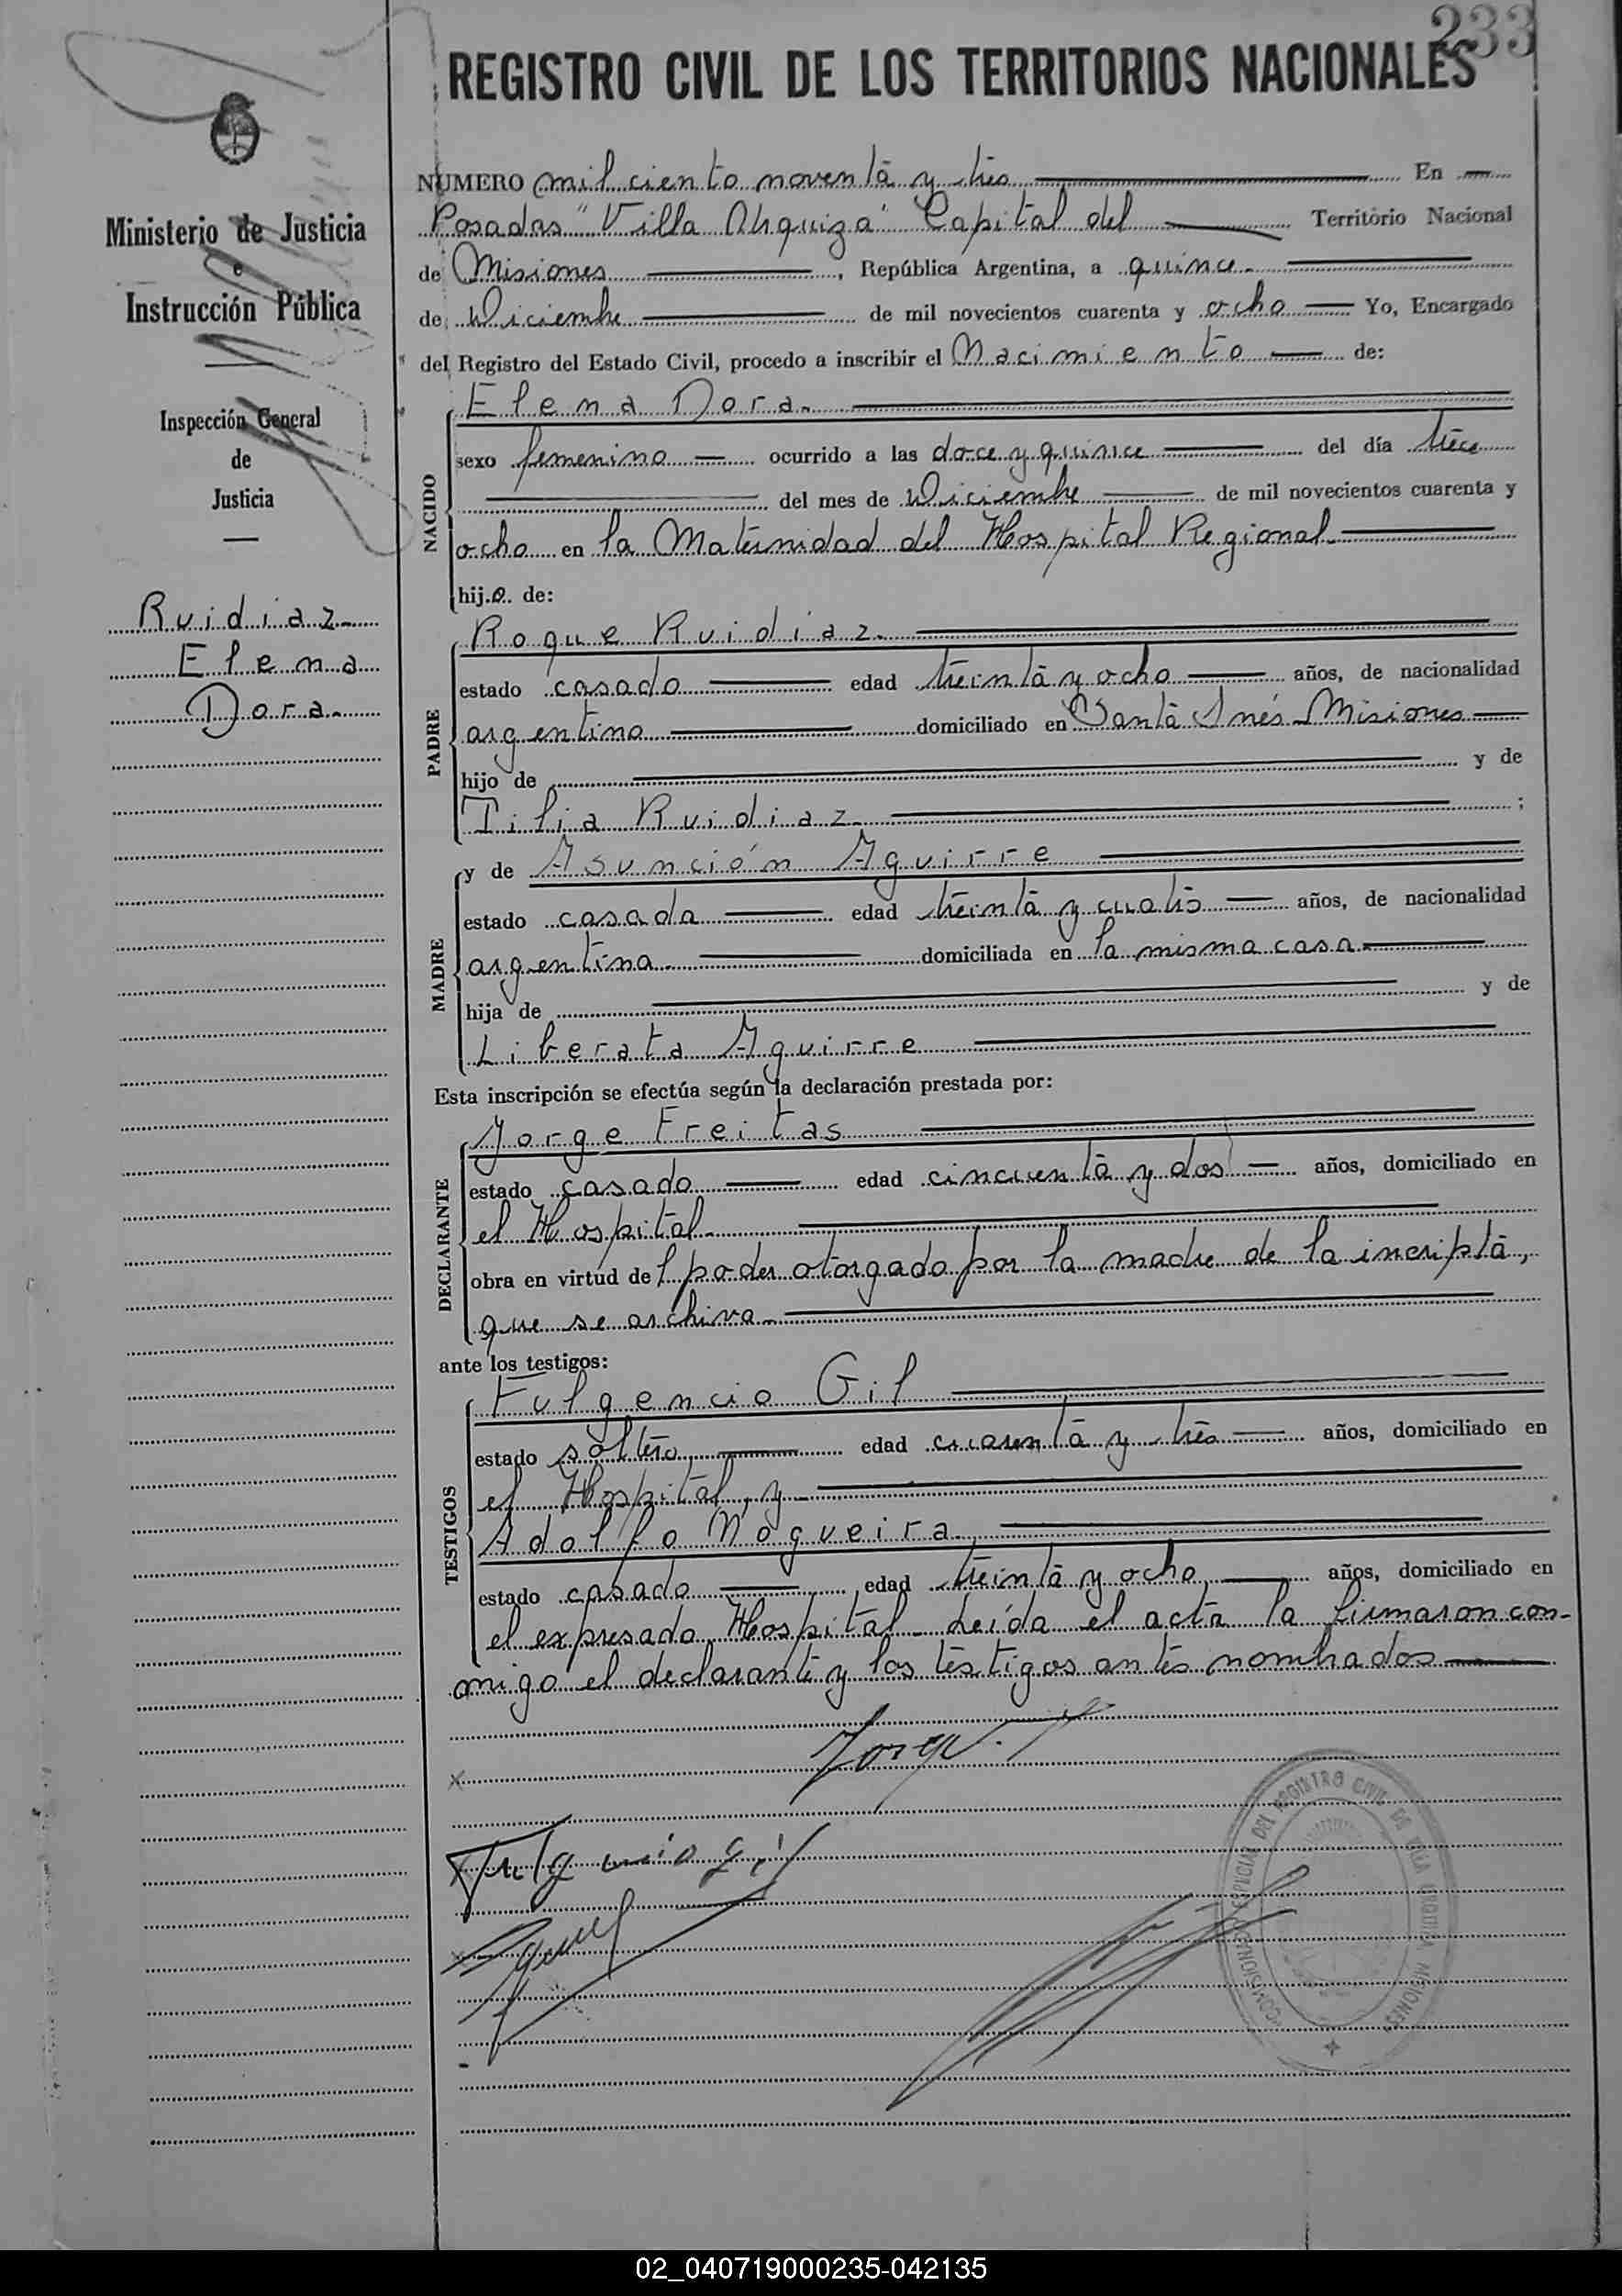 233
REGISTRO CIVIL DE LOS TERRITORIOS NACIONALES
Ministerio de Justicia
e
Instrucción Pública
Inspección General
de
Justicia
Ruidiaz
Elena
Dora.
NUMERO mil ciento noventa y tres En
Posadas "Villa Urquiza" Capital del Territorio Nacional
de Misiones, República Argentina, a quince
de Diciembre de mil novecientos cuarenta y ocho Yo, Encargado
del Registro del Estado Civil, procedo a inscribir el Nacimiento de:
NACIDO
Elena Dora.
sexo femenino ocurrido a las doce y quince del día trece
del mes de Diciembre de mil novecientos cuarenta y
ocho en la Maternidad del Hospital Regional
hija de:
PADRE
Roque Ruidiaz.
estado casado edad treinta y ocho años, de nacionalidad
argentino domiciliado en Santa Inés Misiones
hijo de y de
Tilia Ruidiaz. ;
MADRE
y de Asunción Aguirre
estado casada edad treinta y cuatro años, de nacionalidad
argentina. domiciliada en la misma casa
hija de y de
Liberata Aguirre
Esta inscripción se efectúa según la declaración prestada por:
DECLARANTE
Jorge Freitas
estado casado edad cincuenta y dos años, domiciliado en
el Hospital.
obra en virtud del poder otorgado por la madre de la inscripta,
que se archiva.
ante los testigos:
TESTIGOS
Fulgencio Gil
estado soltero edad cuarenta y tres años, domiciliado en
el Hospital, y
Adolfo Nogueira.
estado casado edad treinta y ocho años, domiciliado en
el expresado Hospital. Leída el acta la firmaron con-
migo el declarante y los testigos antes nombrados
Jorge
Fulgencio Gil
COMISIONADO ESPECIAL DEL REGISTRO CIVIL DE VILLA URQUIZA MISIONES
02_040719000235-042135